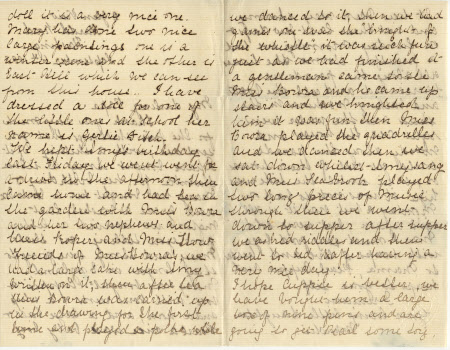 doll it is a very nice one.
Mary has done two nice
large paintings one is a
winter and the other is
East Hill which we can see
from this house. I have
dressed a doll for one of
the little ones at school her
name is Gertie
We kept birthday
last Friday we went for
a in the afternoon then
came home and had tea in
the garden with Miss
and her two nephews and
and Miss
friends of Miss we
had a large cake with
written on it, then after tea
Miss was carried up
to the drawing for the first
time and played a polka while
we danced to it, then we had
games
the whistle, it was such fun
just as we had finished it
a gentleman came to see
Miss and he came up
stairs and we
him it was fun then Miss
played the quadrilles
and we danced then we
sat down whilst sang
and Miss Seabrook played
two long pieces of music
through then we went
down to supper after supper
we asked riddles and then
went to bed after having a
very nice day.
I hope is better, we
have bought him a large
box of and are
going to get